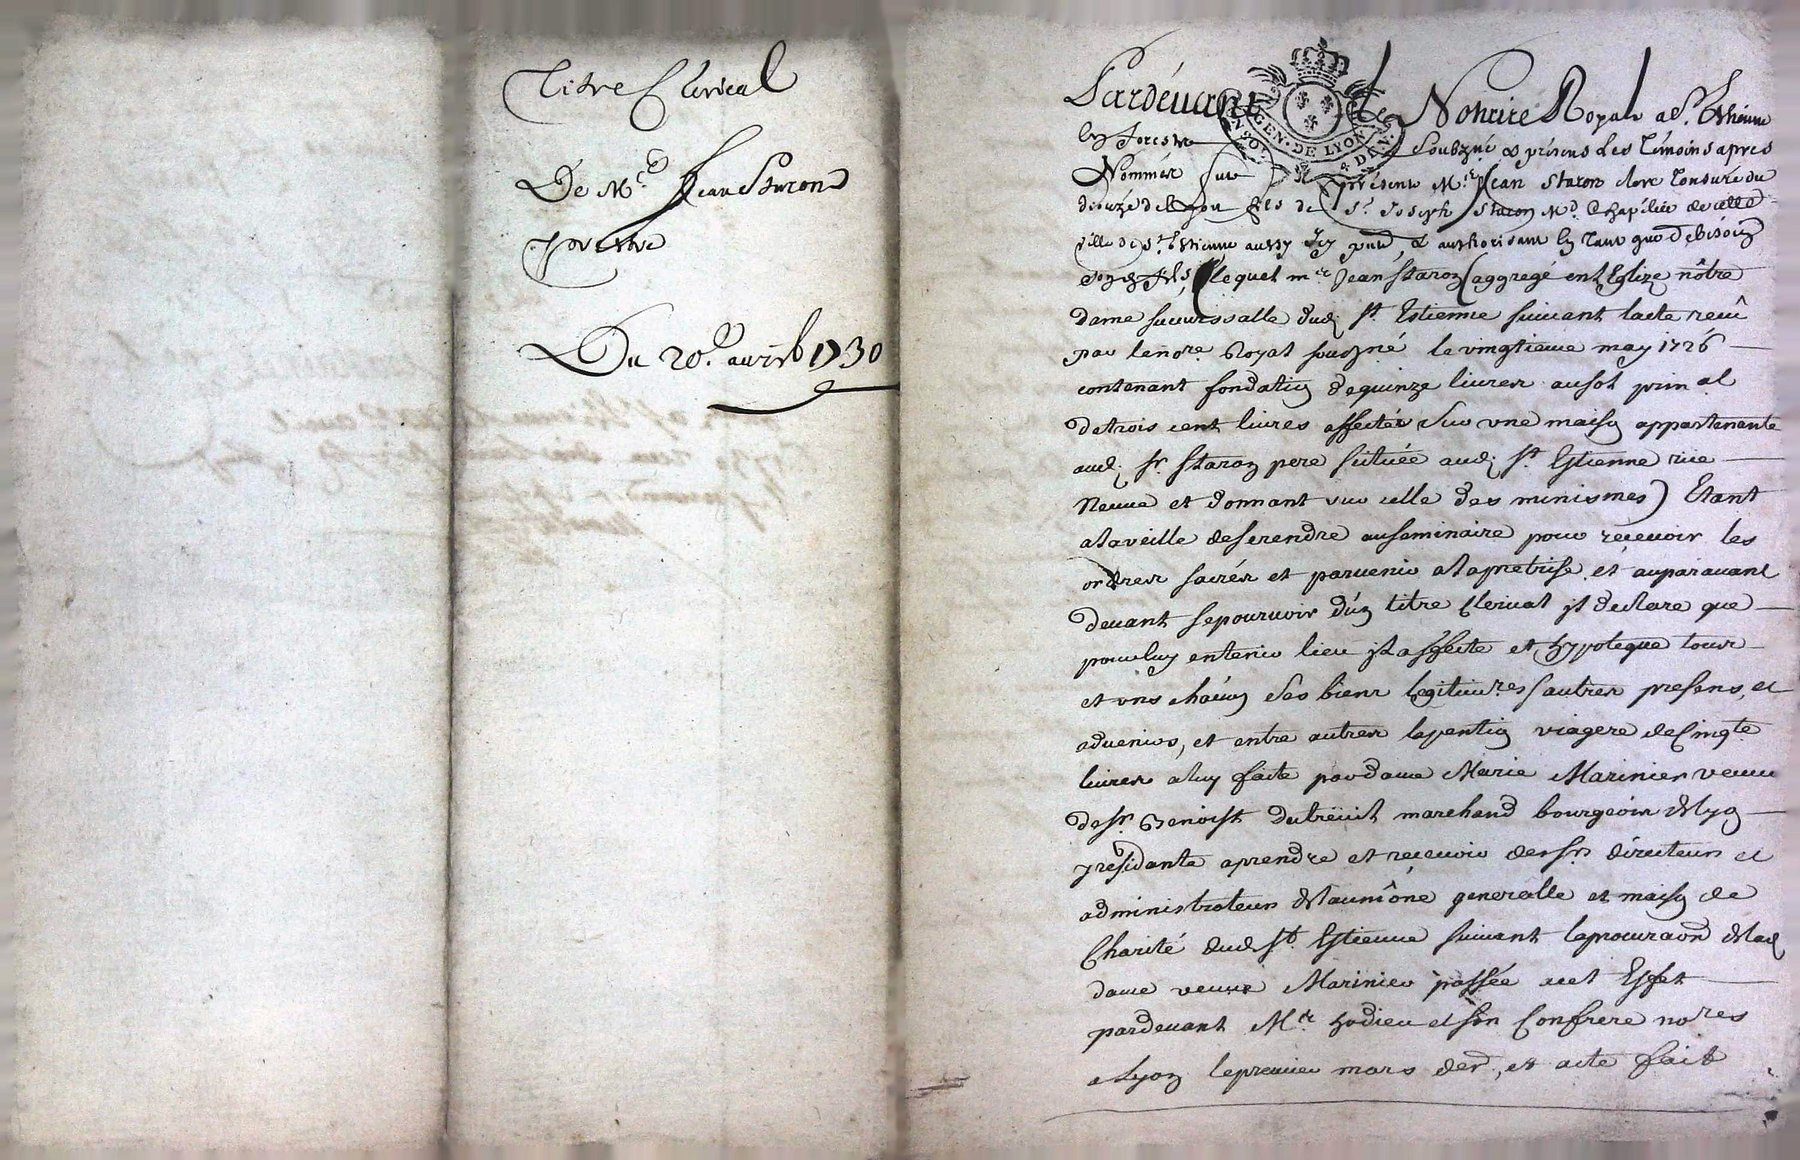 Titre Clerical
De Mre Jean Staron
prestre
Du 20e. avril 1730
GEN. DE LYON
Pardevant Le Notaire Royal a St. Estienne
En Forests Soubzné & présens Les Témoins apres
Nommés fut présent Mre Jean Staron clerc Tonsuré du
diocèze de Lyon fils de Sr. Joseph Staron Md. Chapélier de cette
ville de St. Estienne aussy Icy pnt & authorisant En Tant que De bésoin
Sond. fils, (lequel mre Jean Staron (aggregé en L'Eglize nôtre
dame succursalle dud. St. Estienne suivant lacte receû
par le nore. Royal sousné le vingtieme may 1726
contenant fondation de quinze livres au sol prinal
de trois cent livres affectés sur une maison appartenante
aud. sr. staron pere scituée aud. St. Estienne rüe
Neuve et donnant sur celle des minismes) Etant
a la veille de se rendre au seminaire pour recevoir les
ordres sacrés et parvenir a la pretrise, et auparavant
devant se pourvoir d'un titre Clerical jl declare que
pour luy en tenir lieu jl affecte et hypoteque tous
et uns chácun ses biens legitimes / autres presens, et
advenirs, et entre autres la pention viagere de Cinqte
livres a luy faite par dame Marie Marinier veuve
de sr. Benoist Dutreüil marchand bourgeois de Lyon
y residante a prendre et recevoir des srs directeurs et
administrateurs de l'aumône generalle et maison de
Charité dud. St. Estienne suivant la procuraon de lad.
dame veuve Marinier passée a cet Effet
pardevant Mre. hodieu et son Confrere nores
a Lyon le premier mars der., et acte fait